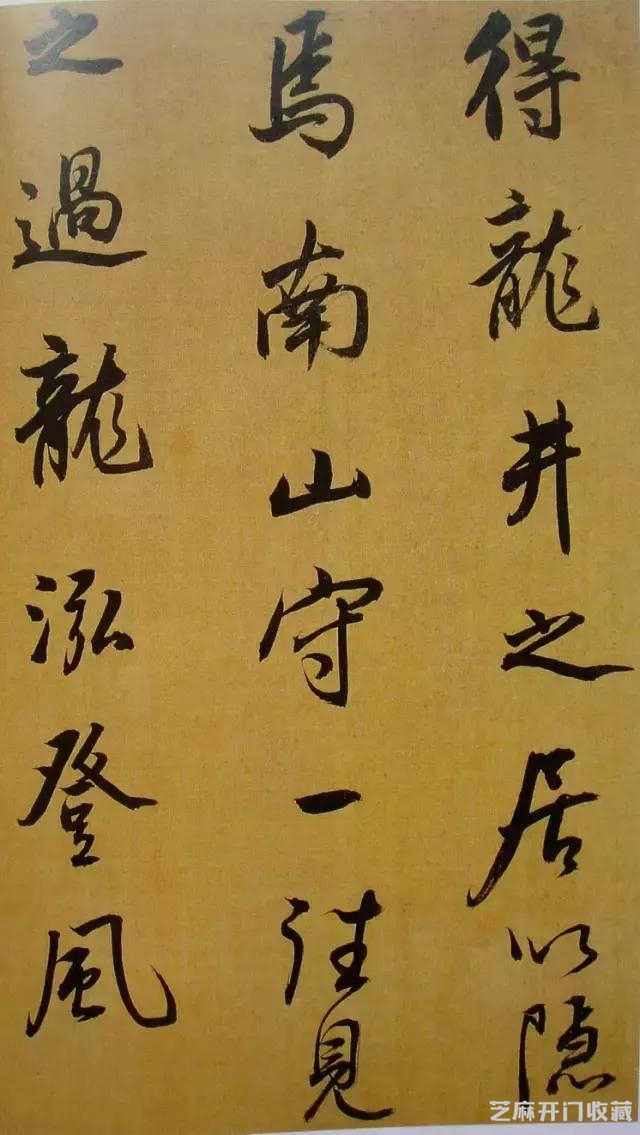 得龍井之居以隱
焉南山守一往見
之過龍泓登風
芝麻开门收藏